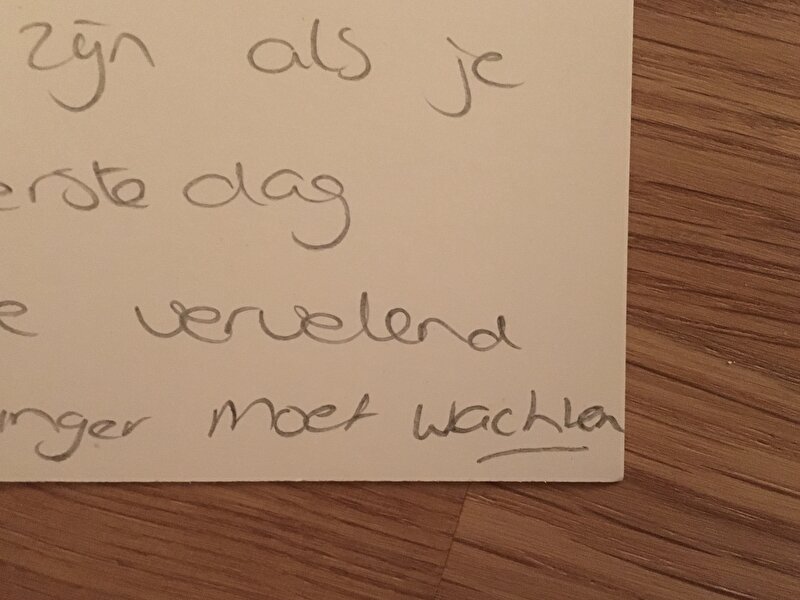 zijn als je
erste dag
e vervelend
nger moet wachten